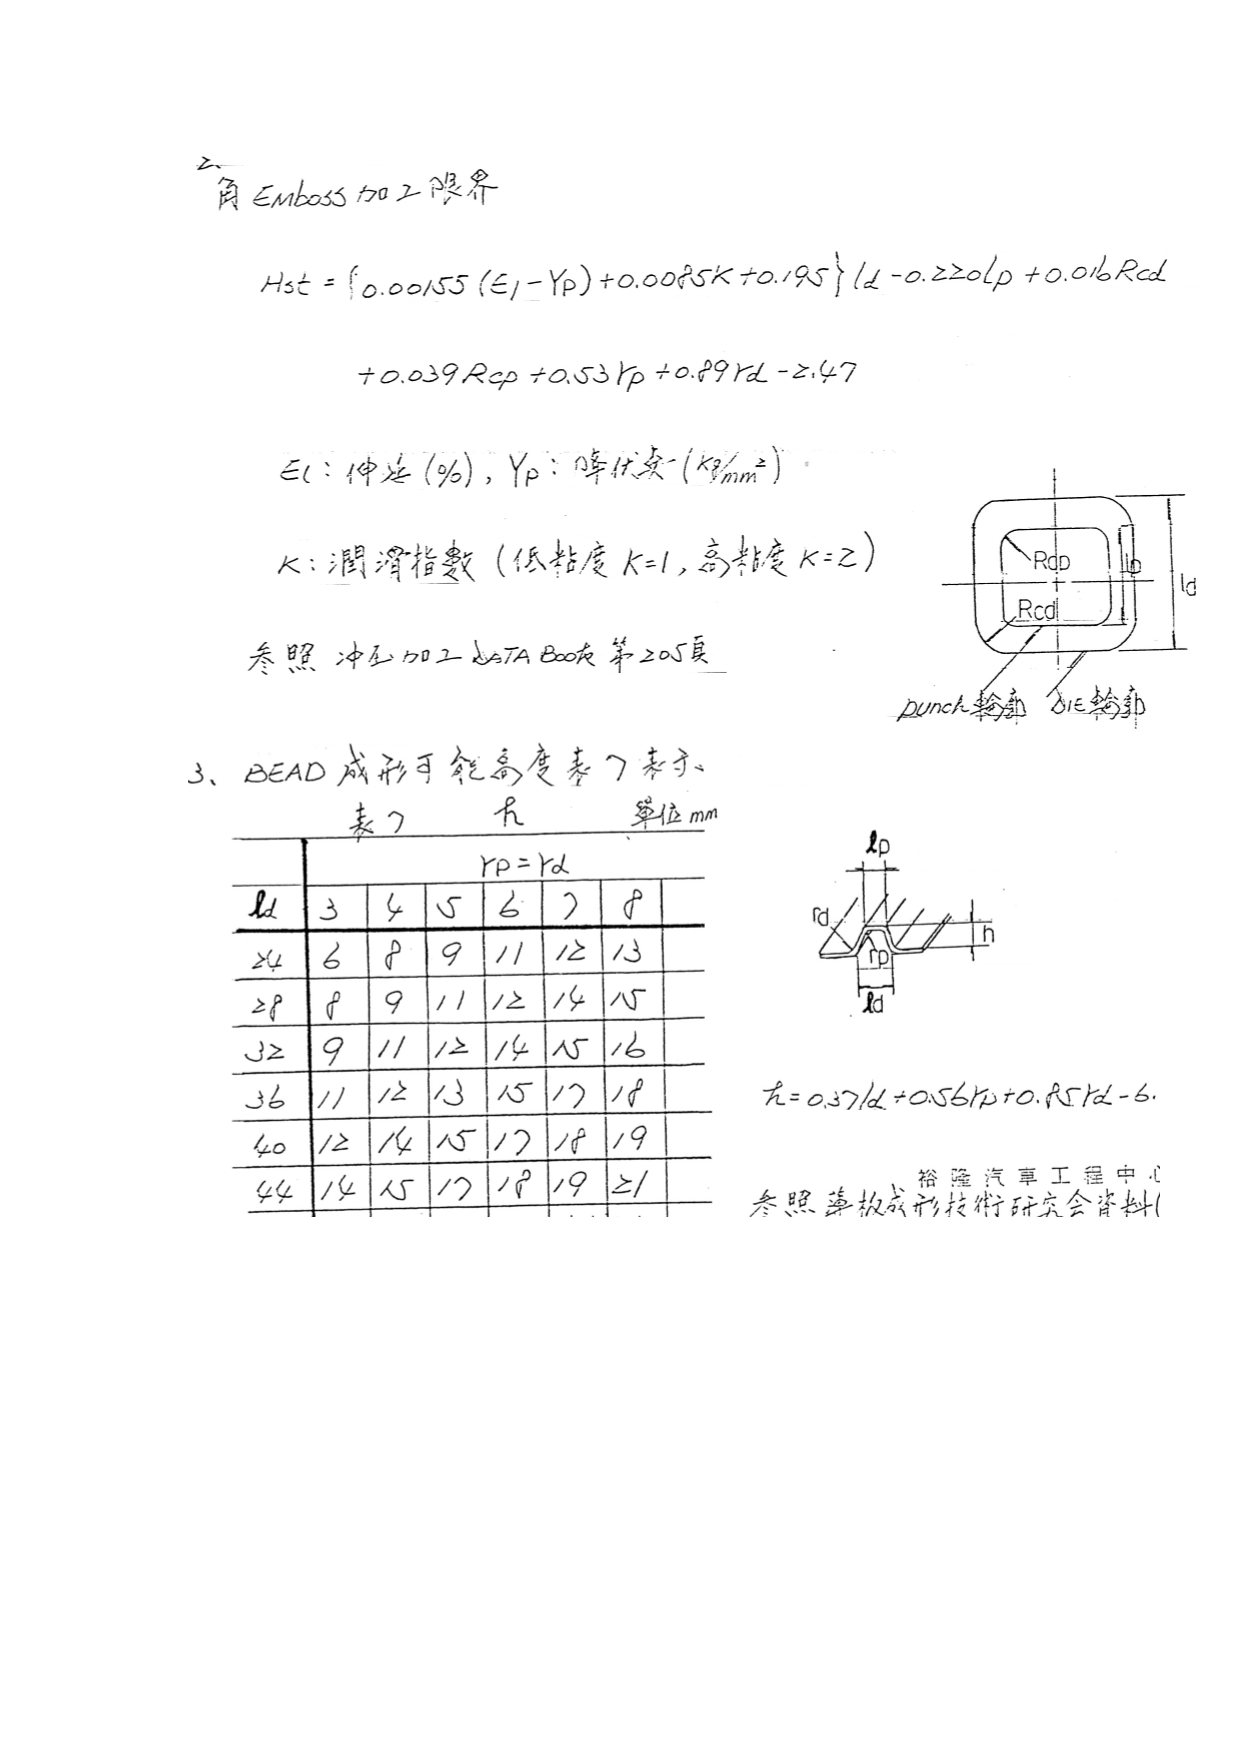 2、
角 Emboss 加工限界
Hst = {0.00155 (El - Yp) + 0.0085K + 0.195} ld - 0.220lp + 0.016Rcd
+ 0.039Rcp + 0.53rp + 0.89rd - 2.47
El : 伸延 (%) , Yp : 降伏奌 (kg/mm²)
K : 潤滑指數 (低粘度 K=1 , 高粘度 K=2)
Rcp
lp
ld
Rcd
参照 冲压加工 DATA Book 第205頁
punch輪廓 DIE輪廓
3、BEAD 成形可能高度表7表示、
表7 h 單位 mm
rp = rd
ld 3 4 5 6 7 8
24 6 8 9 11 12 13
28 8 9 11 12 14 15
32 9 11 12 14 15 16
36 11 12 13 15 17 18
40 12 14 15 17 18 19
44 14 15 17 18 19 21
lp
rd
h
rp
ld
h = 0.37ld + 0.56rp + 0.85rd - 6.
裕隆汽車工程中心
参照 薄板成形技術研究会資料(